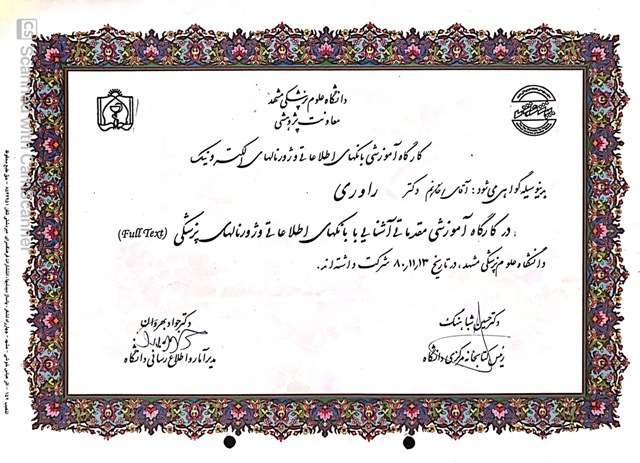 دانشگاه علوم پزشکی مشهد
معاونت پژوهشی
کارگاه آموزشی بانکهای اطلاعاتی و ژورنالهای الکترونیک
بدینوسیله گواهی می شود : آقای / خانم دکتر راوری
در کارگاه آموزشی مقدماتی آشنایی با بانکهای اطلاعاتی و ژورنالهای پزشکی (Full Text)
دانشگاه علوم پزشکی مشهد ، در تاریخ ۸۰,۱۱,۱۳ شرکت داشته اند.
دکتر حسین شباهنگ
رئیس کتابخانه مرکزی دانشگاه
دکتر جواد بهروان
مدیر آمار و اطلاع رسانی دانشگاه
CS Scanned with CamScanner